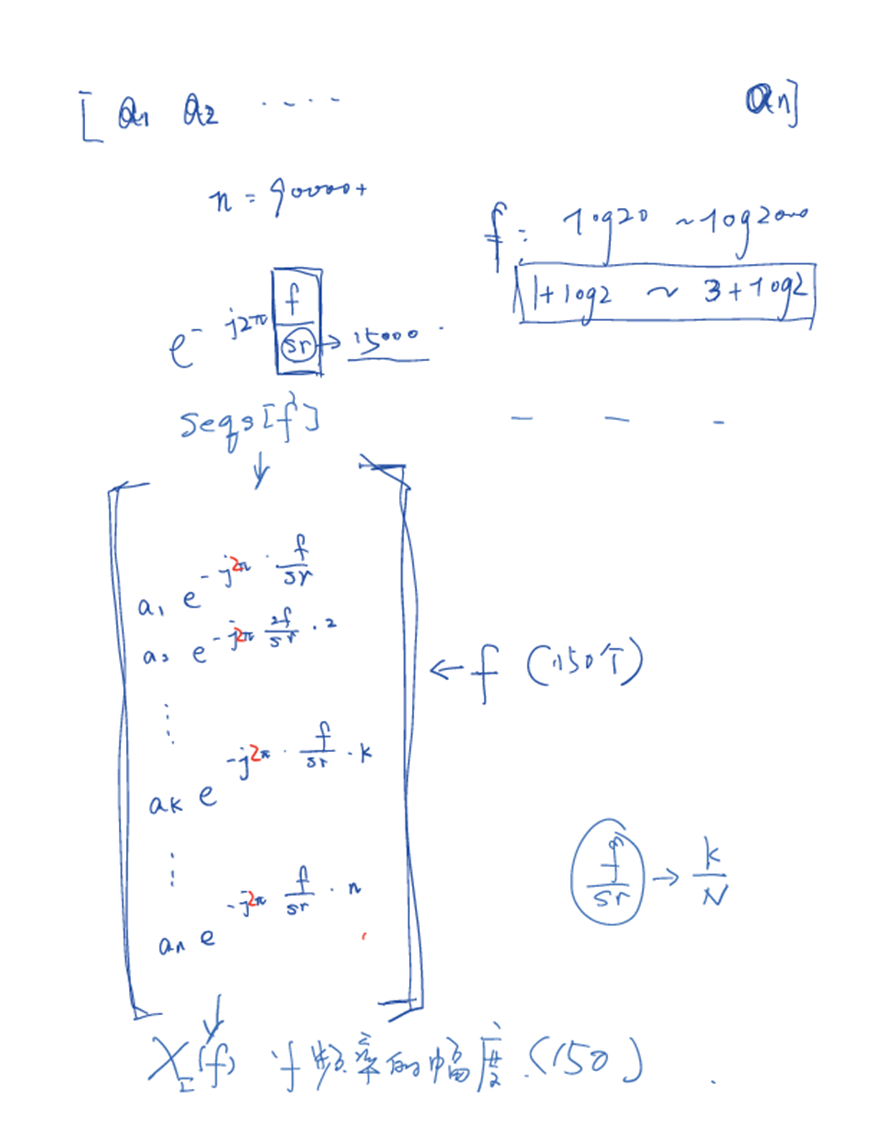 [ a₁ a₂ ···· aₙ]
n = 90000+
f: log20 ~ log2000
1+log2 ~ 3+log2
e^{-j2π f/sr} → 15000
seqs[f]
↓
a₁ e^{-j2π · f/sr}
a₂ e^{-j2π 2f/sr · 2}
⋮
← f (150个)
aₖ e^{-j2π · f/sr · k}
⋮
f/sr → k/N
aₙ e^{-j2π f/sr · n}
↓
X(f) f频率的幅度 (150)